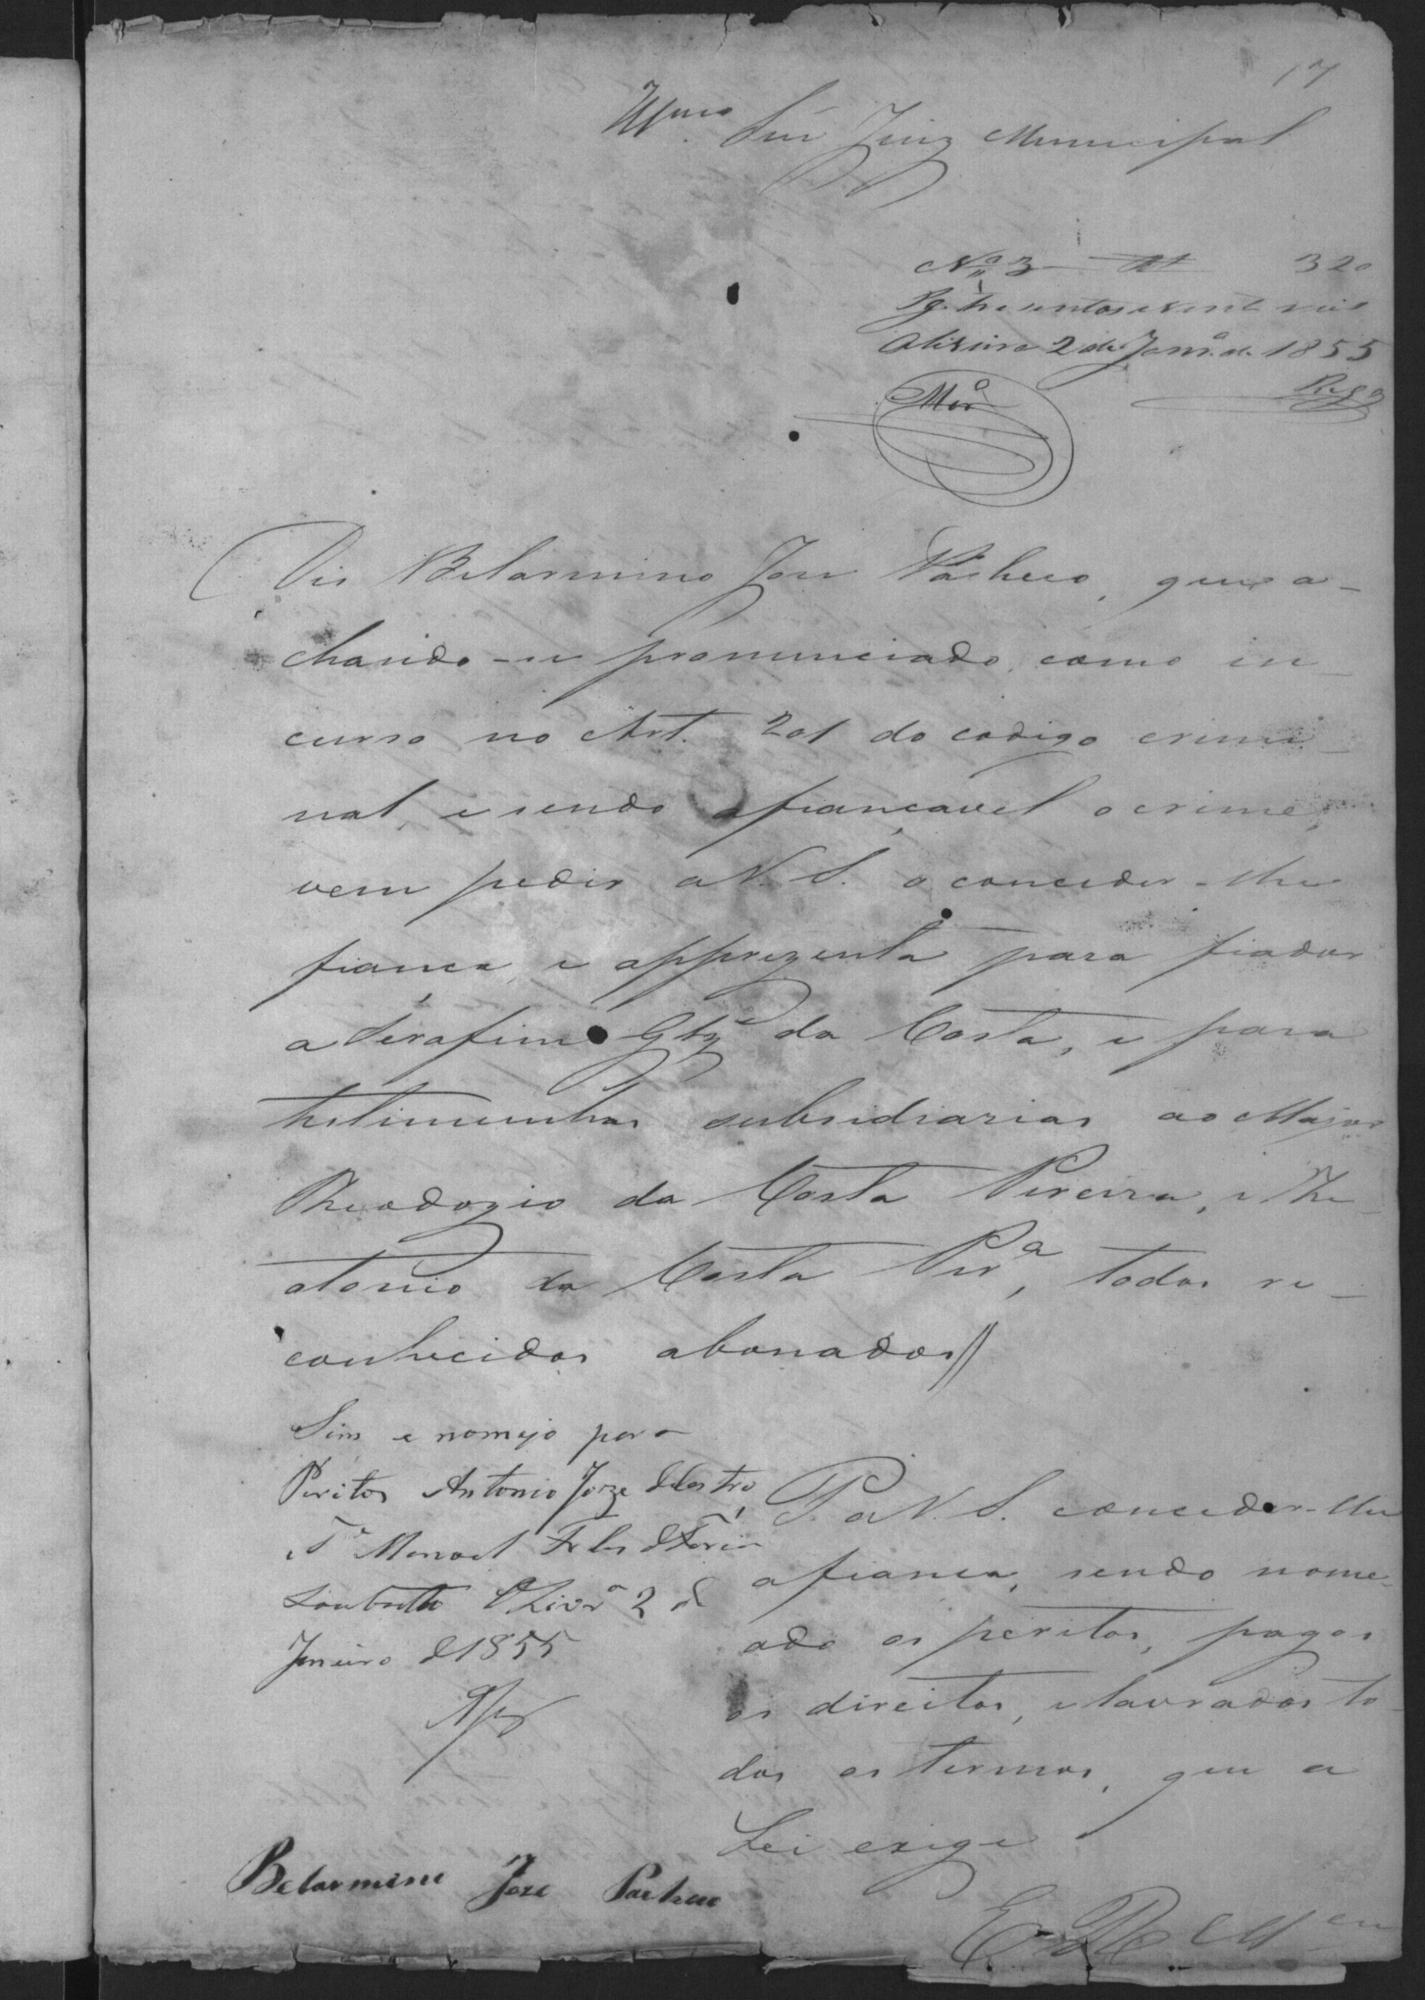 17
Illmo. Snr. Juiz Municipal
No. 3 320
Pg. trezentos e vinte reis
Oliveira 2 de Janro. de 1855
Mor Rego
Diz Belarmino Jose Pacheco, que a-
chando-se pronunciado, como in-
curso no Art. 201 do codigo crimi-
nal, e sendo afiançavel o crime,
vem pedir a V. S. o conceder-lhe
fiança, e apprezenta para fiador
a Serafim Glz da Costa, e para
testimunhas subsidiarias ao Major
Theodozio da Costa Pereira, e The-
otonio da Costa Per.a, todos re-
conhecidos abonados//
Sim e nomeio para
Peritos Antonio Joze de Castro,
e Te. Manoel de Faria
Olivr.a 2 d
Janeiro d 1855
P. a V. S. conceder-lhe
a fiança, sendo nome-
ado os peritos, pagos
os direitos, e lavrados to-
dos os termos, que a
Lei exige.
Belarmino Joze Pacheco
E. R. Mce